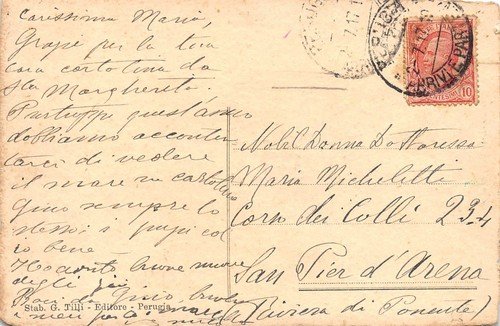 Carissima Maria,
Grazie per la tua
cara cartolina da
Sta Margherita.
Purtroppo quest'anno
dobbiamo acconten
tarci di vedere
il mare in cartolina
sempre lo
stesso: i pupi col
bene
Ho avuto buone nuove
degli
Baci
Stab. G. Tilli - Editore - Perugia
PERUGIA
ARRIVI E PAR
10
Nobil Donna Dottoressa
Maria Micheletti
Corso dei Colli 234
San Pier d'Arena
(Riviera di Ponente)